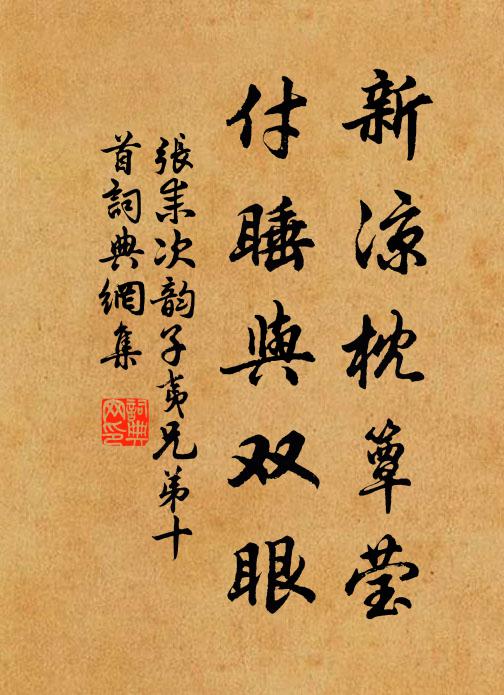 新涼枕簟莹
付睡與双眼
張耒次韵子夷兄弟十
首詞典網集
詞典
网印